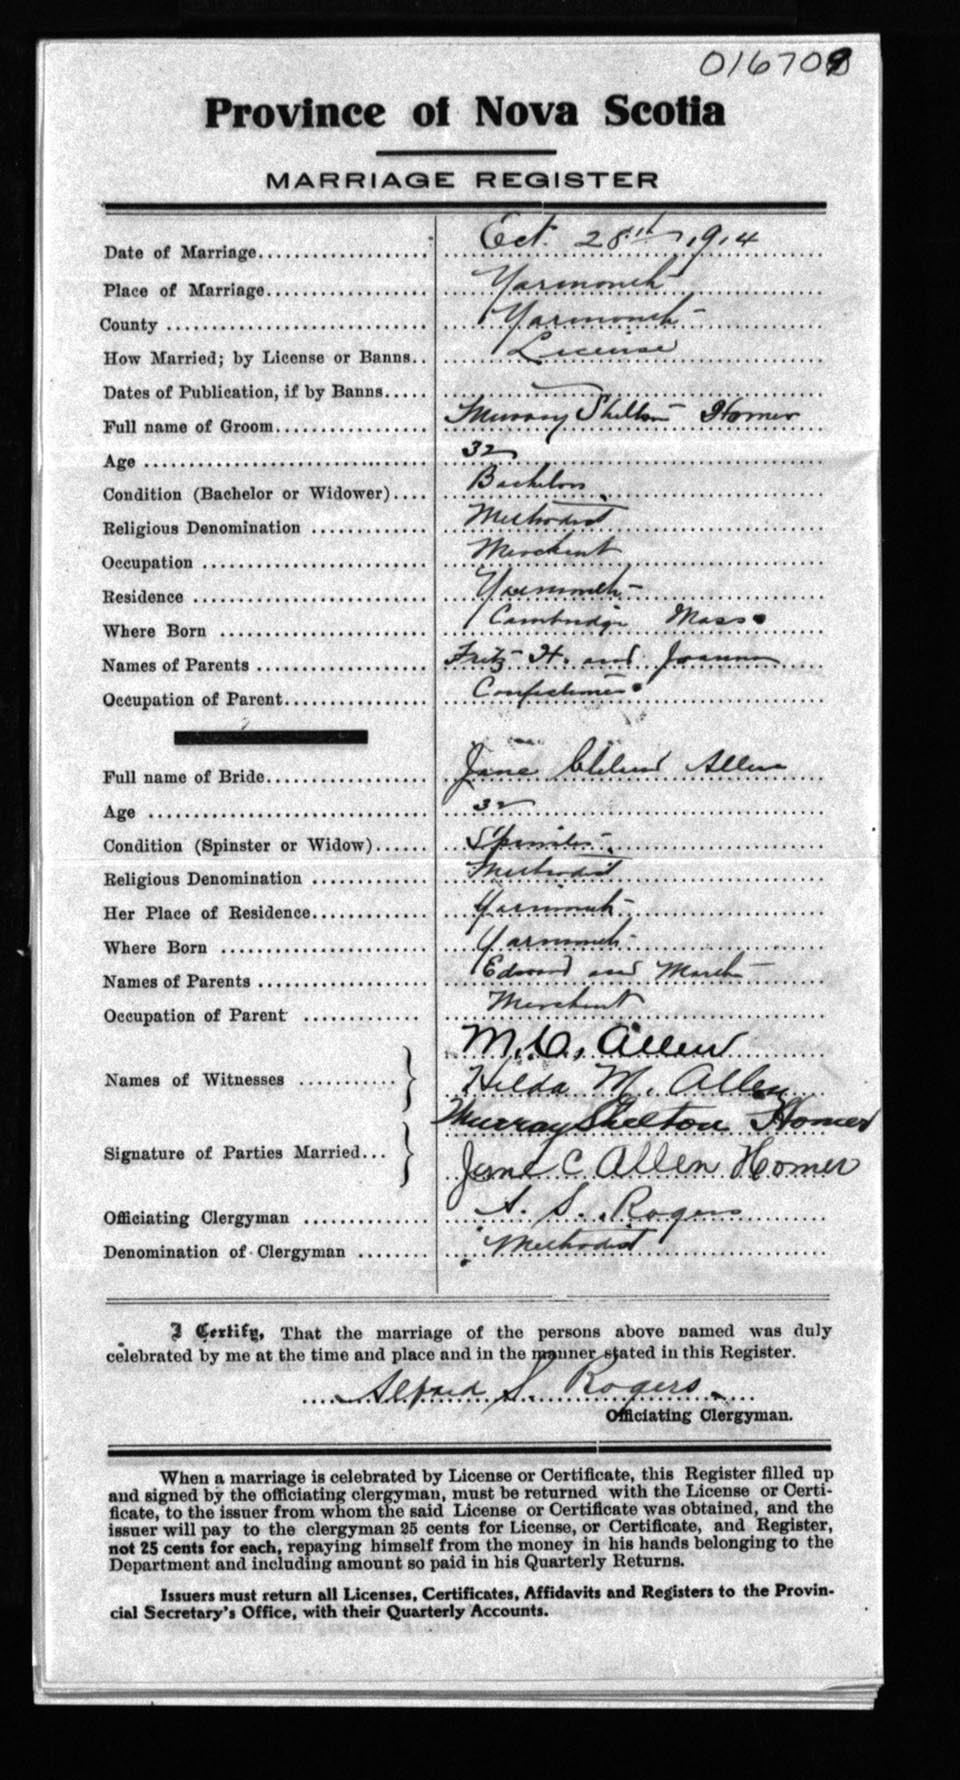 016709
Province of Nova Scotia
MARRIAGE REGISTER
Date of Marriage Oct. 28th, 1914
Place of Marriage Yarmouth
County Yarmouth
How Married; by License or Banns License
Dates of Publication, if by Banns
Full name of Groom Murray Shelton Homer
Age 32
Condition (Bachelor or Widower) Bachelor
Religious Denomination Methodist
Occupation Merchant
Residence Yarmouth
Where Born Cambridge Mass.
Names of Parents Fritz H. and Joanna
Occupation of Parent
Full name of Bride Jane Allen
Age 32
Condition (Spinster or Widow) Spinster
Religious Denomination Methodist
Her Place of Residence Yarmouth
Where Born Yarmouth
Names of Parents Edward and
Occupation of Parent Merchant
Names of Witnesses M. C. Allen
Hilda M. Allen
Signature of Parties Married Murray Shelton Homer
Jane C. Allen Homer
Officiating Clergyman A. S. Rogers
Denomination of Clergyman Methodist
I Certify, That the marriage of the persons above named was duly
celebrated by me at the time and place and in the manner stated in this Register.
Alfred S. Rogers
Officiating Clergyman.
When a marriage is celebrated by License or Certificate, this Register filled up
and signed by the officiating clergyman, must be returned with the License or Certi-
ficate, to the issuer from whom the said License or Certificate was obtained, and the
issuer will pay to the clergyman 25 cents for License, or Certificate, and Register,
not 25 cents for each, repaying himself from the money in his hands belonging to the
Department and including amount so paid in his Quarterly Returns.
Issuers must return all Licenses, Certificates, Affidavits and Registers to the Provin-
cial Secretary's Office, with their Quarterly Accounts.